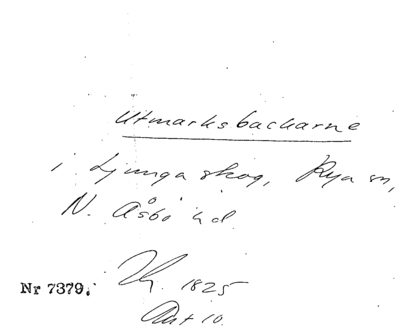 Utmarksbackarne
i Ljungaskog, Rya sn,
N. Åsbo hd.
1825
Nr 7379.
Akt 10.